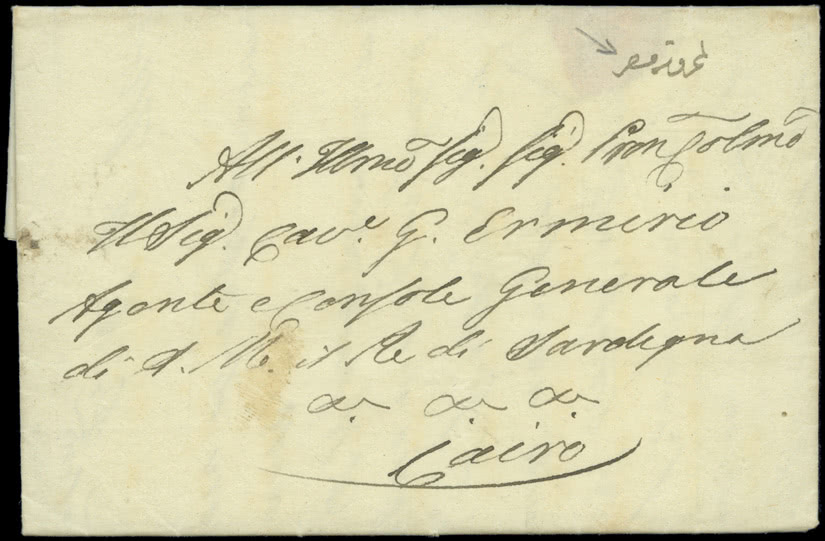 All. Illmo Sig. Sig. Pron Colmo
Il Sig. Cave. G. Ermirio
Agente e Console Generale
di S. M. il Re di Sardegna
&. &. &.
Cairo